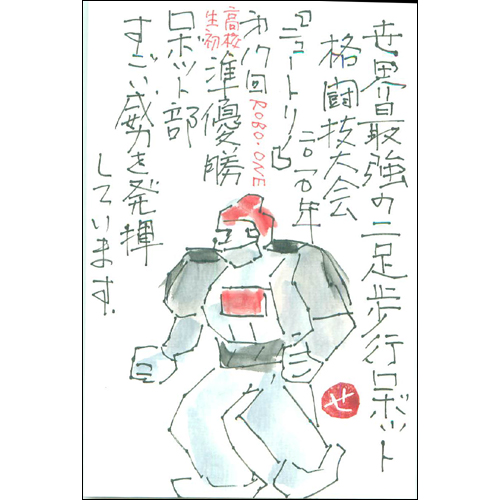 世界最強の二足歩行ロボット
格闘技大会
『ニュートリノ』
才17回 ROBO-ONE
高校
生初
準優勝
ロボット部
すごい威力を発揮
しています.
せ